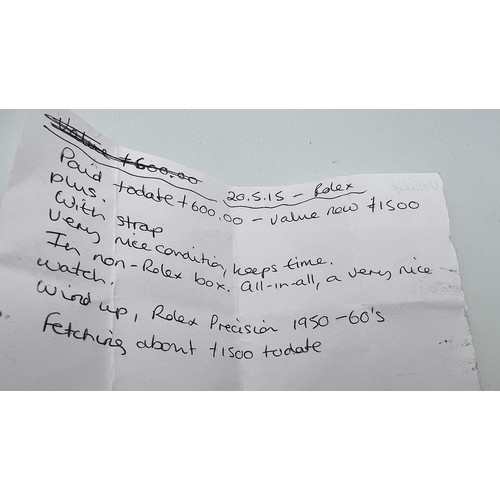 Value £600.00
20.5.15 - Rolex
Paid todate £600.00 - value now £1500
plus.
With strap
Very nice condition, keeps time.
In non-Rolex box. All-in-all, a very nice
watch.
Wind up, Rolex Precision 1950-60's
Fetching about £1500 todate